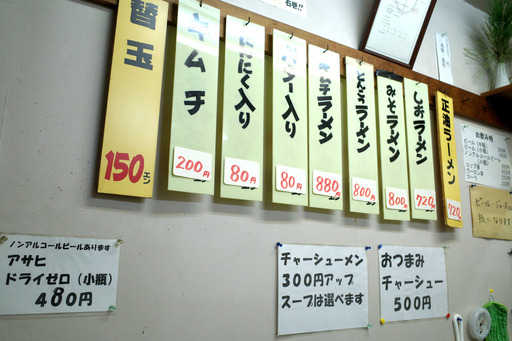 替玉
150エン
キムチ
200円
にんにく入り
80円
バター入り
80円
キムチラーメン
880円
とんこつラーメン
800円
みそラーメン
800円
しおラーメン
720円
正油ラーメン
720
お飲み物
ビール・ジュースは
ノンアルコールビールあります
アサヒ
ドライゼロ(小瓶)
480円
チャーシューメン
300円アップ
スープは選べます
おつまみ
チャーシュー
500円